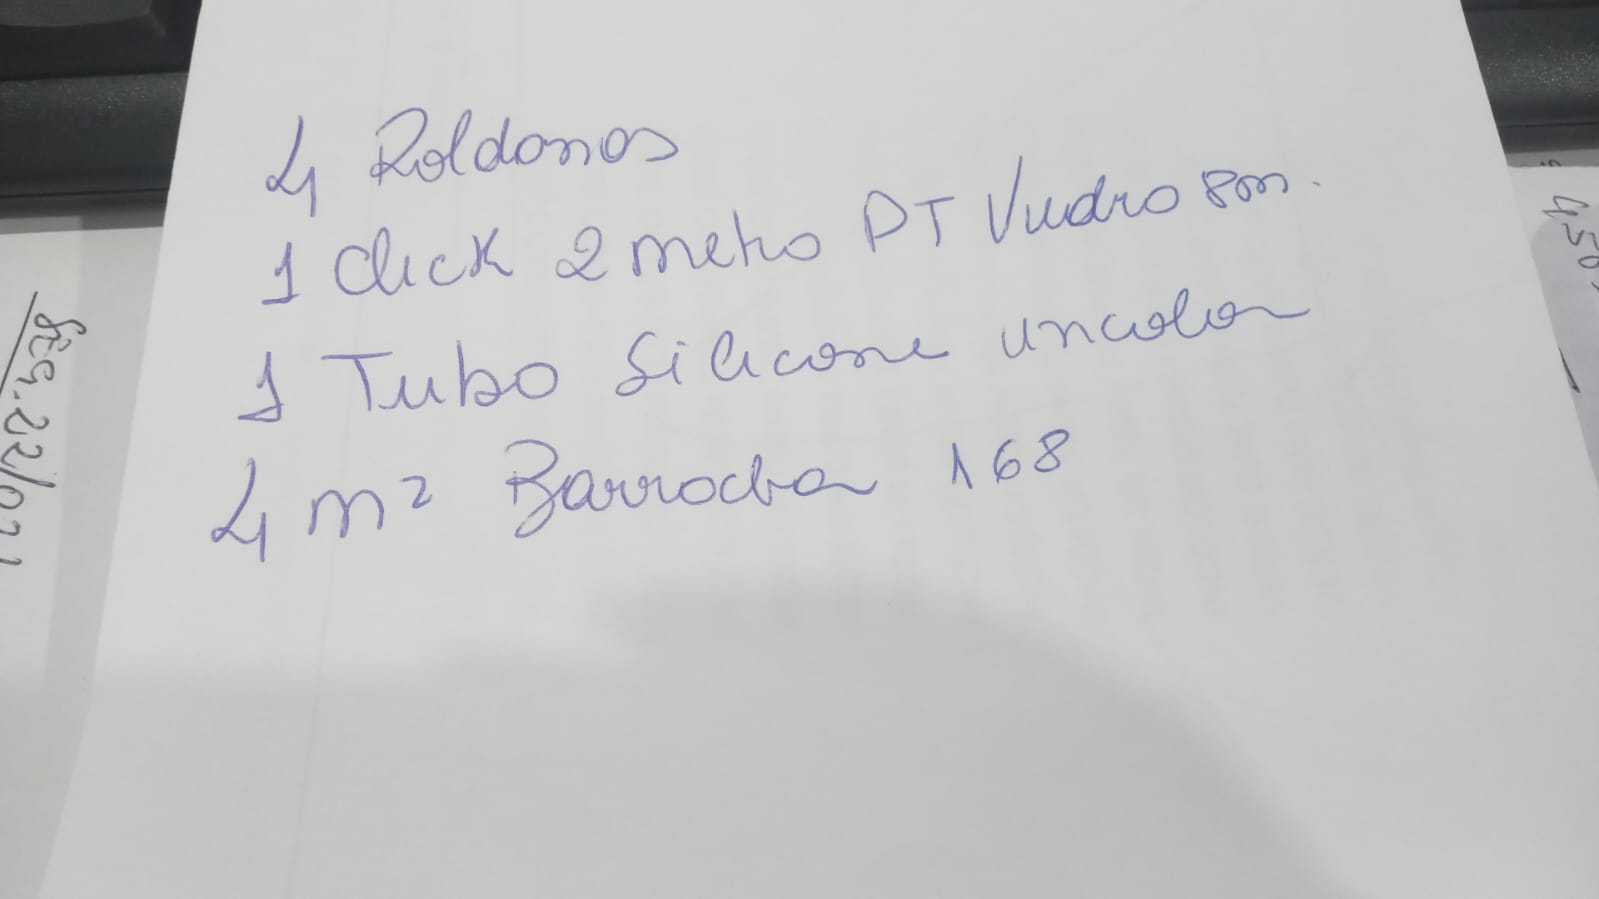 4 Roldanas
1 Click 2 metro PT Vidro 8m.
1 Tubo Silicone incolor
4 m² Borracha 168
Seg. 22/02
450